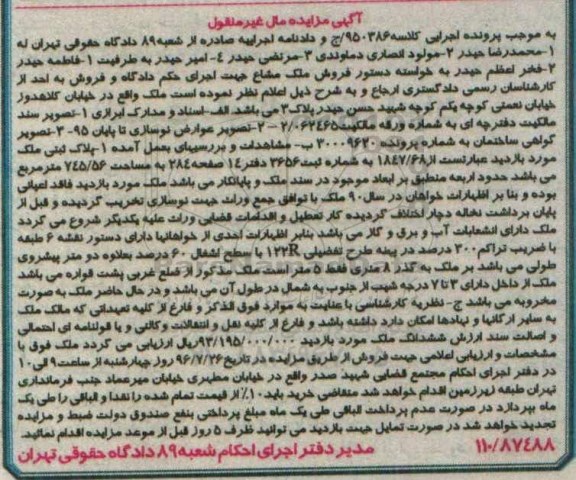 آگهی مزایده مال غیرمنقول
به موجب پرونده اجرایی کلاسه ۹۵۰۳۸۶/ج و دادنامه اجراییه صادره از شعبه ۸۹ دادگاه حقوقی تهران له
۱-محمدرضا حیدر ۲-مولود انصاری دماوندی ۳-مرتضی حیدر ۴- امیر حیدر به طرفیت ۱-فاطمه حیدر
۲-فخر اعظم حیدر به خواسته دستور فروش ملک مشاع جهت اجرای حکم دادگاه و فروش به احد از
کارشناسان رسمی دادگستری ارجاع و به شرح ذیل اعلام نظر نموده است ملک واقع در خیابان کلاهدوز
خیابان نعمتی کوچه یکم کوچه شهید حسن حیدر پلاک ۳ می باشد الف-اسناد و مدارک ابرازی ۱-تصویر سند
مالکیت دفترچه ای به شماره ورقه مالکیت ۲/۰۶۲۴۶۵ – ۲-تصویر عوارض نوسازی تا پایان ۹۵- ۳-تصویر
گواهی ساختمان به شماره پرونده ۳۰۰۰۹۶۲۰ ب- مشاهدات و بررسیهای بعمل آمده ۱-پلاک ثبتی ملک
مورد بازدید عبارتست از ۱۸۴۷/۶۸ به شماره ثبت ۳۶۵۶ دفتر ۱۴ صفحه ۲۸۴ به مساحت ۷۴۵/۵۶ مترمربع
می باشد حدود اربعه منطبق بر ابعاد موجود در سند ملک و پایانکار می باشد ملک مورد بازدید فاقد اعیانی
بوده و بنا بر اظهارات خواهان در سال ۹۰ ملک با توافق جمع وراث جهت نوسازی تخریب گردیده و قبل از
پایان برداشت نخاله دچار اختلاف گردیده کار تعطیل و اقدامات قضایی وراث علیه یکدیگر شروع می گردد
ملک دارای انشعابات آب و برق و گاز می باشد بنابر اظهارات احدی از خواهانها دارای دستور نقشه ۶ طبقه
با ضریب تراکم ۳۰۰ درصد در پهنه طرح تفضیلی R۱۲۲ با سطح اشغال ۶۰ درصد بعلاوه دو متر پیشروی
طولی می باشد بر ملک به گذر ۸ متری فقط ۵ متر است ملک مذکور از ضلع غربی پشت قواره می باشد
ملک از داخل دارای ۳ تا ۷ درجه شیب از جنوب به شمال در طول آن می باشد و در حال حاضر ملک به صورت
مخروبه می باشد ج- نظریه کارشناسی با عنایت به موارد فوق الذکر و فارغ از کلیه تعهداتی که مالک ملک
به سایر ارگانها و نهادها امکان دارد داشته باشد و فارغ از کلیه نقل و انتقالات وکالتی و یا قولنامه ای احتمالی
و اصالت سند ارزش ششدانگ ملک مورد بازدید ۹۳/۱۹۵/۰۰۰/۰۰۰ریال ارزیابی می گردد ملک فوق با
مشخصات و ارزیابی اعلامی جهت فروش از طریق مزایده در تاریخ ۹۶/۷/۲۶ روز چهارشنبه از ساعت ۹ الی ۱۰
در دفتر اجرای احکام مجتمع قضایی شهید صدر واقع در خیابان مطهری خیابان میرعماد جنب فرمانداری
تهران طبقه زیرزمین اقدام خواهد شد متقاضی خرید باید ۱۰٪ از قیمت تمام شده را نقدا و الباقی را طی یک
ماه بپردازد در صورت عدم پرداخت الباقی طی یک ماه مبلغ پرداختی بنفع صندوق دولت ضبط و مزایده
تجدید خواهد شد در صورت تمایل جهت بازدید می توانید ظرف ۵ روز قبل از موعد مزایده اقدام نمائید.
۱۱۰/۸۷۴۸۸ مدیر دفتر اجرای احکام شعبه ۸۹ دادگاه حقوقی تهران